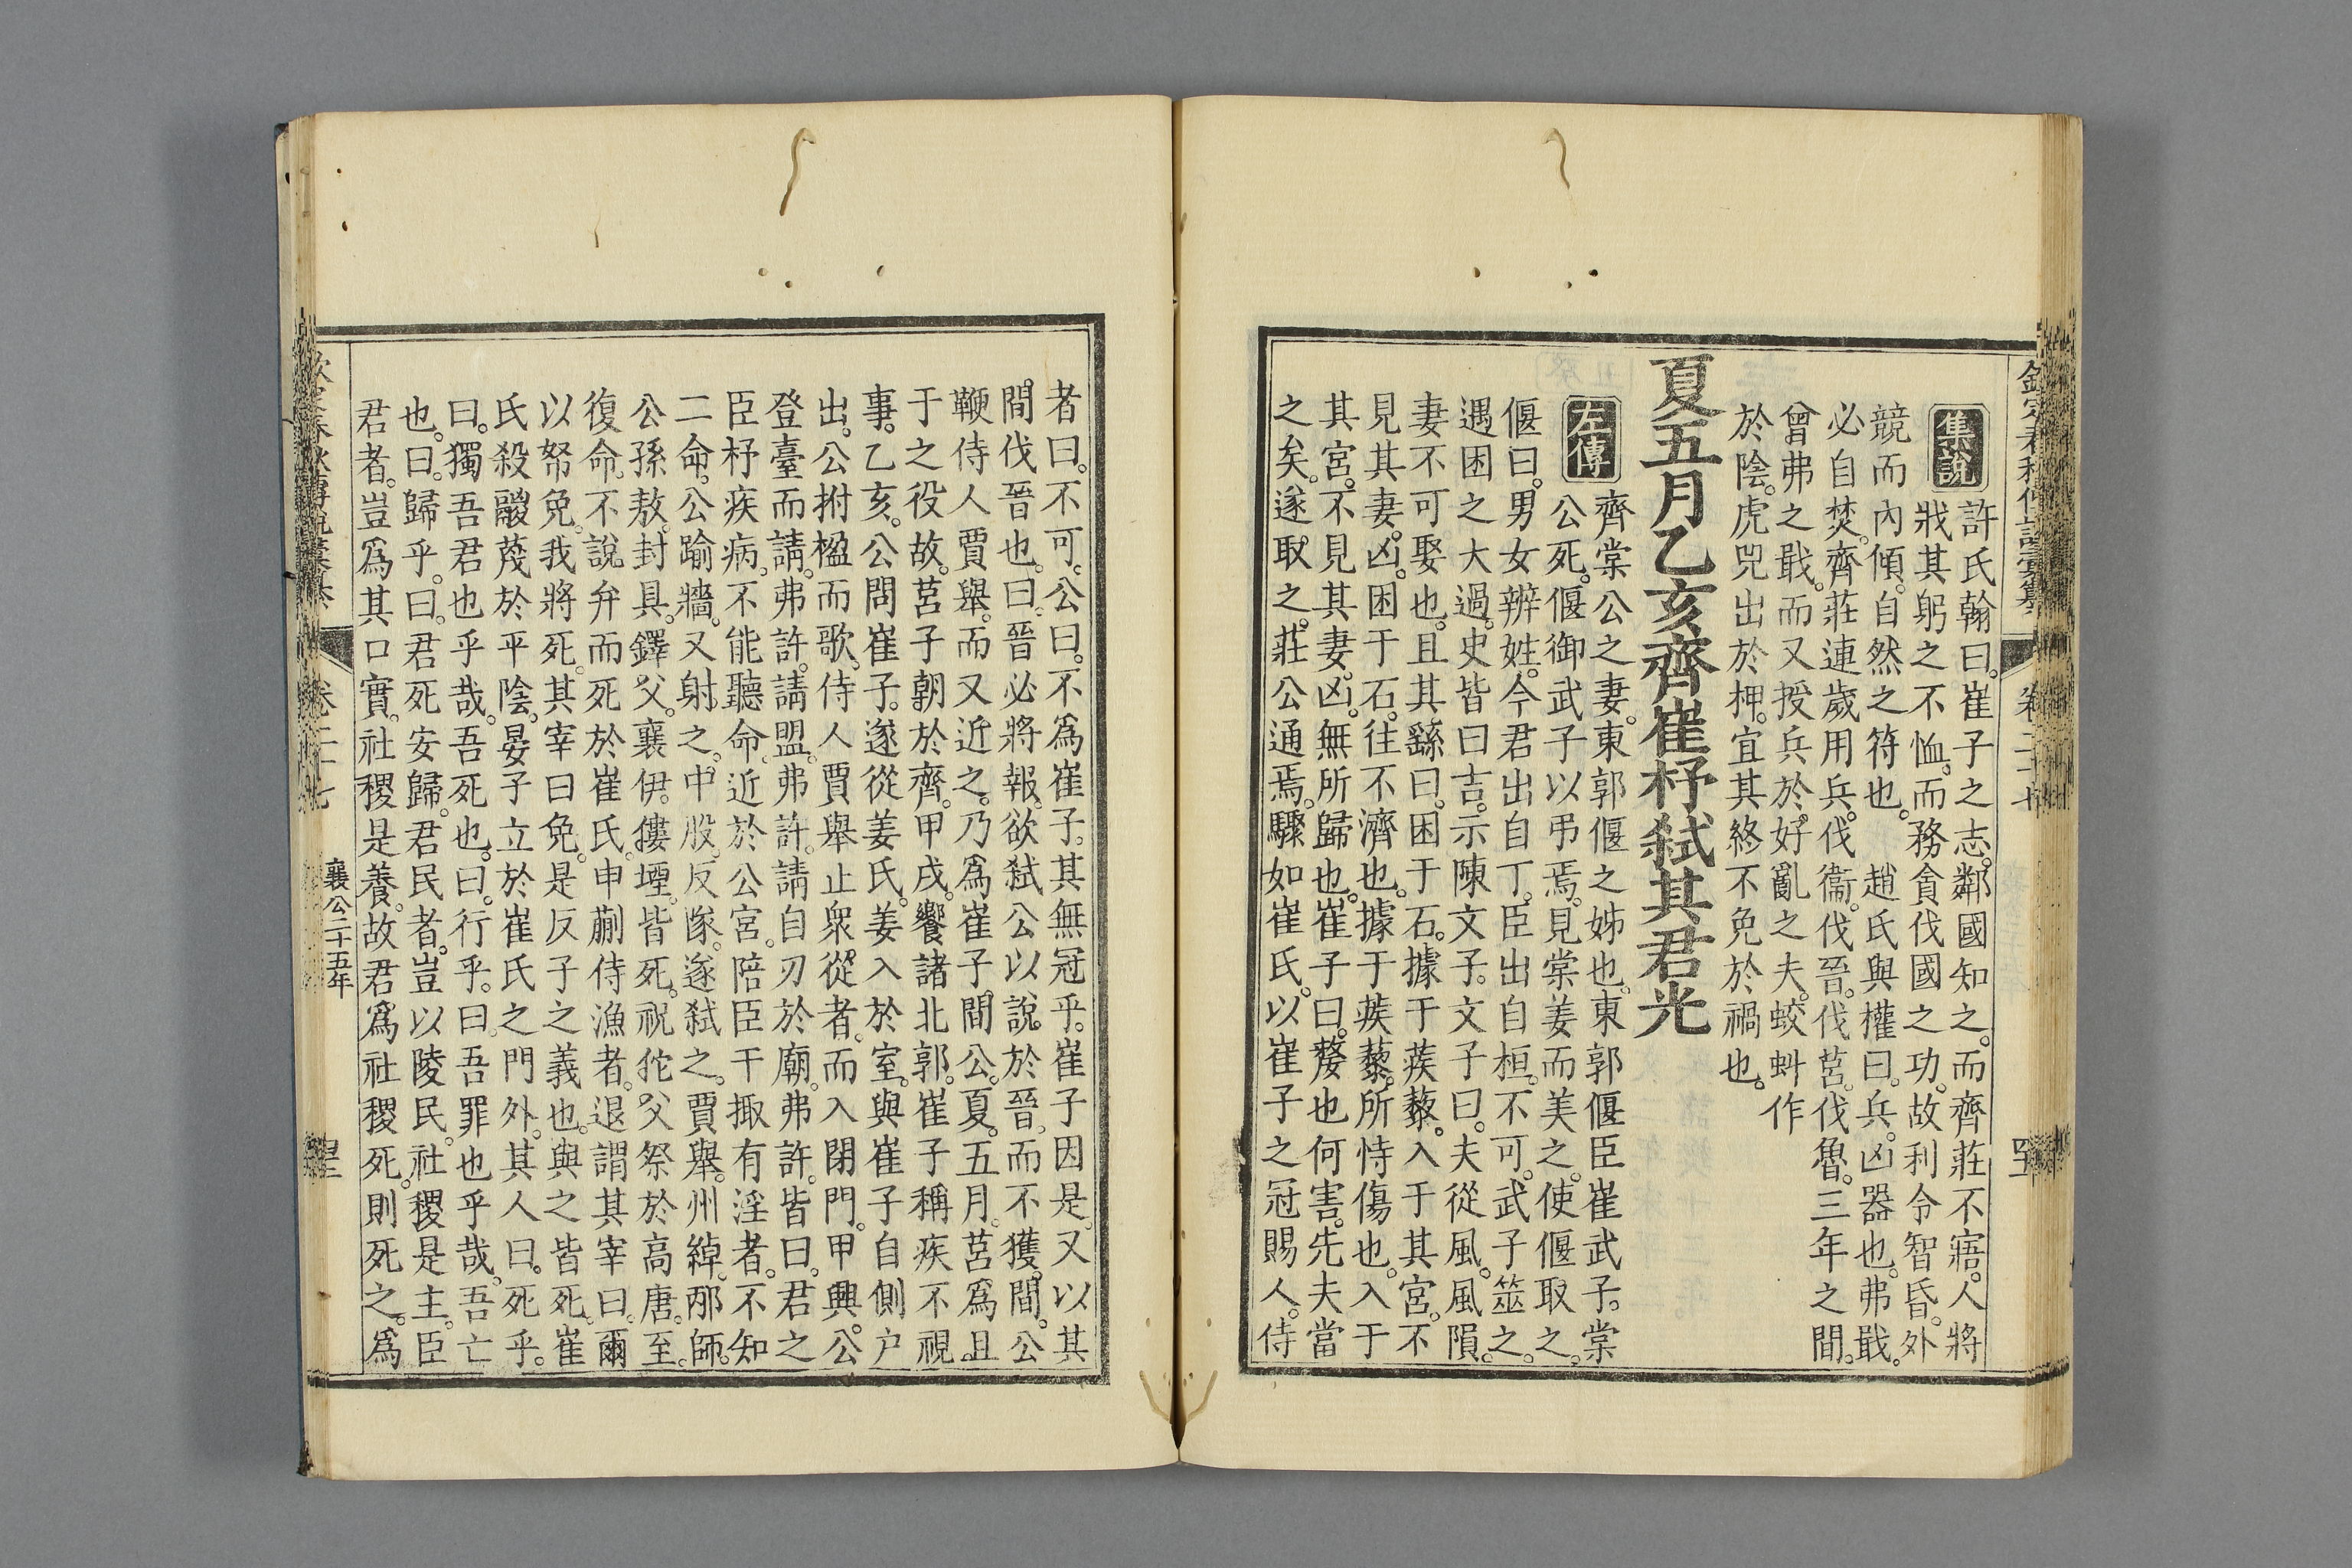 集說
許氏翰曰。崔子之志。鄰國知之。而齊莊不寤。人將
戕其躬之不恤。而務貪伐國之功。故利令智昏。外
競而內傾。自然之符也。 趙氏與權曰。兵。凶器也。弗戢。
必自焚。齊莊連歲用兵。伐衞。伐晉。伐莒。伐魯。三年之間。
曾弗之戢。而又授兵於好亂之夫。蛟蚪作
於陰。虎兕出於柙。宜其終不免於禍也。
夏五月乙亥齊崔杼弒其君光
左傳
齊棠公之妻。東郭偃之姊也。東郭偃臣崔武子。棠
公死。偃御武子以弔焉。見棠姜而美之。使偃取之。
偃曰。男女辨姓。今君出自丁。臣出自桓。不可。武子筮之。
遇困之大過。史皆曰吉。示陳文子。文子曰。夫從風。風隕。
妻不可娶也。且其繇曰。困于石。據于蒺藜。入于其宮。不
見其妻。凶。困于石。往不濟也。據于蒺藜。所恃傷也。入于
其宮。不見其妻。凶。無所歸也。崔子曰。嫠也何害。先夫當
之矣。遂取之。莊公通焉。驟如崔氏。以崔子之冠賜人。侍
者曰。不可。公曰。不爲崔子。其無冠乎。崔子因是。又以其
間伐晉也。曰。晉必將報。欲弒公以說於晉。而不獲間。公
鞭侍人賈舉。而又近之。乃爲崔子間公。夏。五月。莒爲且
于之役故。莒子朝於齊。甲戌。饗諸北郭。崔子稱疾不視
事。乙亥。公問崔子。遂從姜氏。姜入於室。與崔子自側戶
出。公拊楹而歌。侍人賈舉止衆從者。而入閉門。甲興。公
登臺而請。弗許。請盟。弗許。請自刃於廟。弗許。皆曰。君之
臣杼疾病。不能聽命。近於公宮。陪臣干掫有淫者。不知
二命。公踰牆。又射之。中股。反隊。遂弒之。賈舉。州綽。邴師。
公孫敖。封具。鐸父。襄伊。僂堙。皆死。祝佗父祭於高唐。至。
復命。不說弁而死於崔氏。申蒯侍漁者。退謂其宰曰。爾
以帑免。我將死。其宰曰。免。是反子之義也。與之皆死。崔
氏殺鬷蔑於平陰。晏子立於崔氏之門外。其人曰。死乎。
曰。獨吾君也乎哉。吾死也。曰。行乎。曰。吾罪也乎哉。吾亡
也。曰。歸乎。曰。君死安歸。君民者。豈以陵民。社稷是主。臣
君者。豈爲其口實。社稷是養。故君爲社稷死。則死之。爲
卷二十七
襄公二十五年